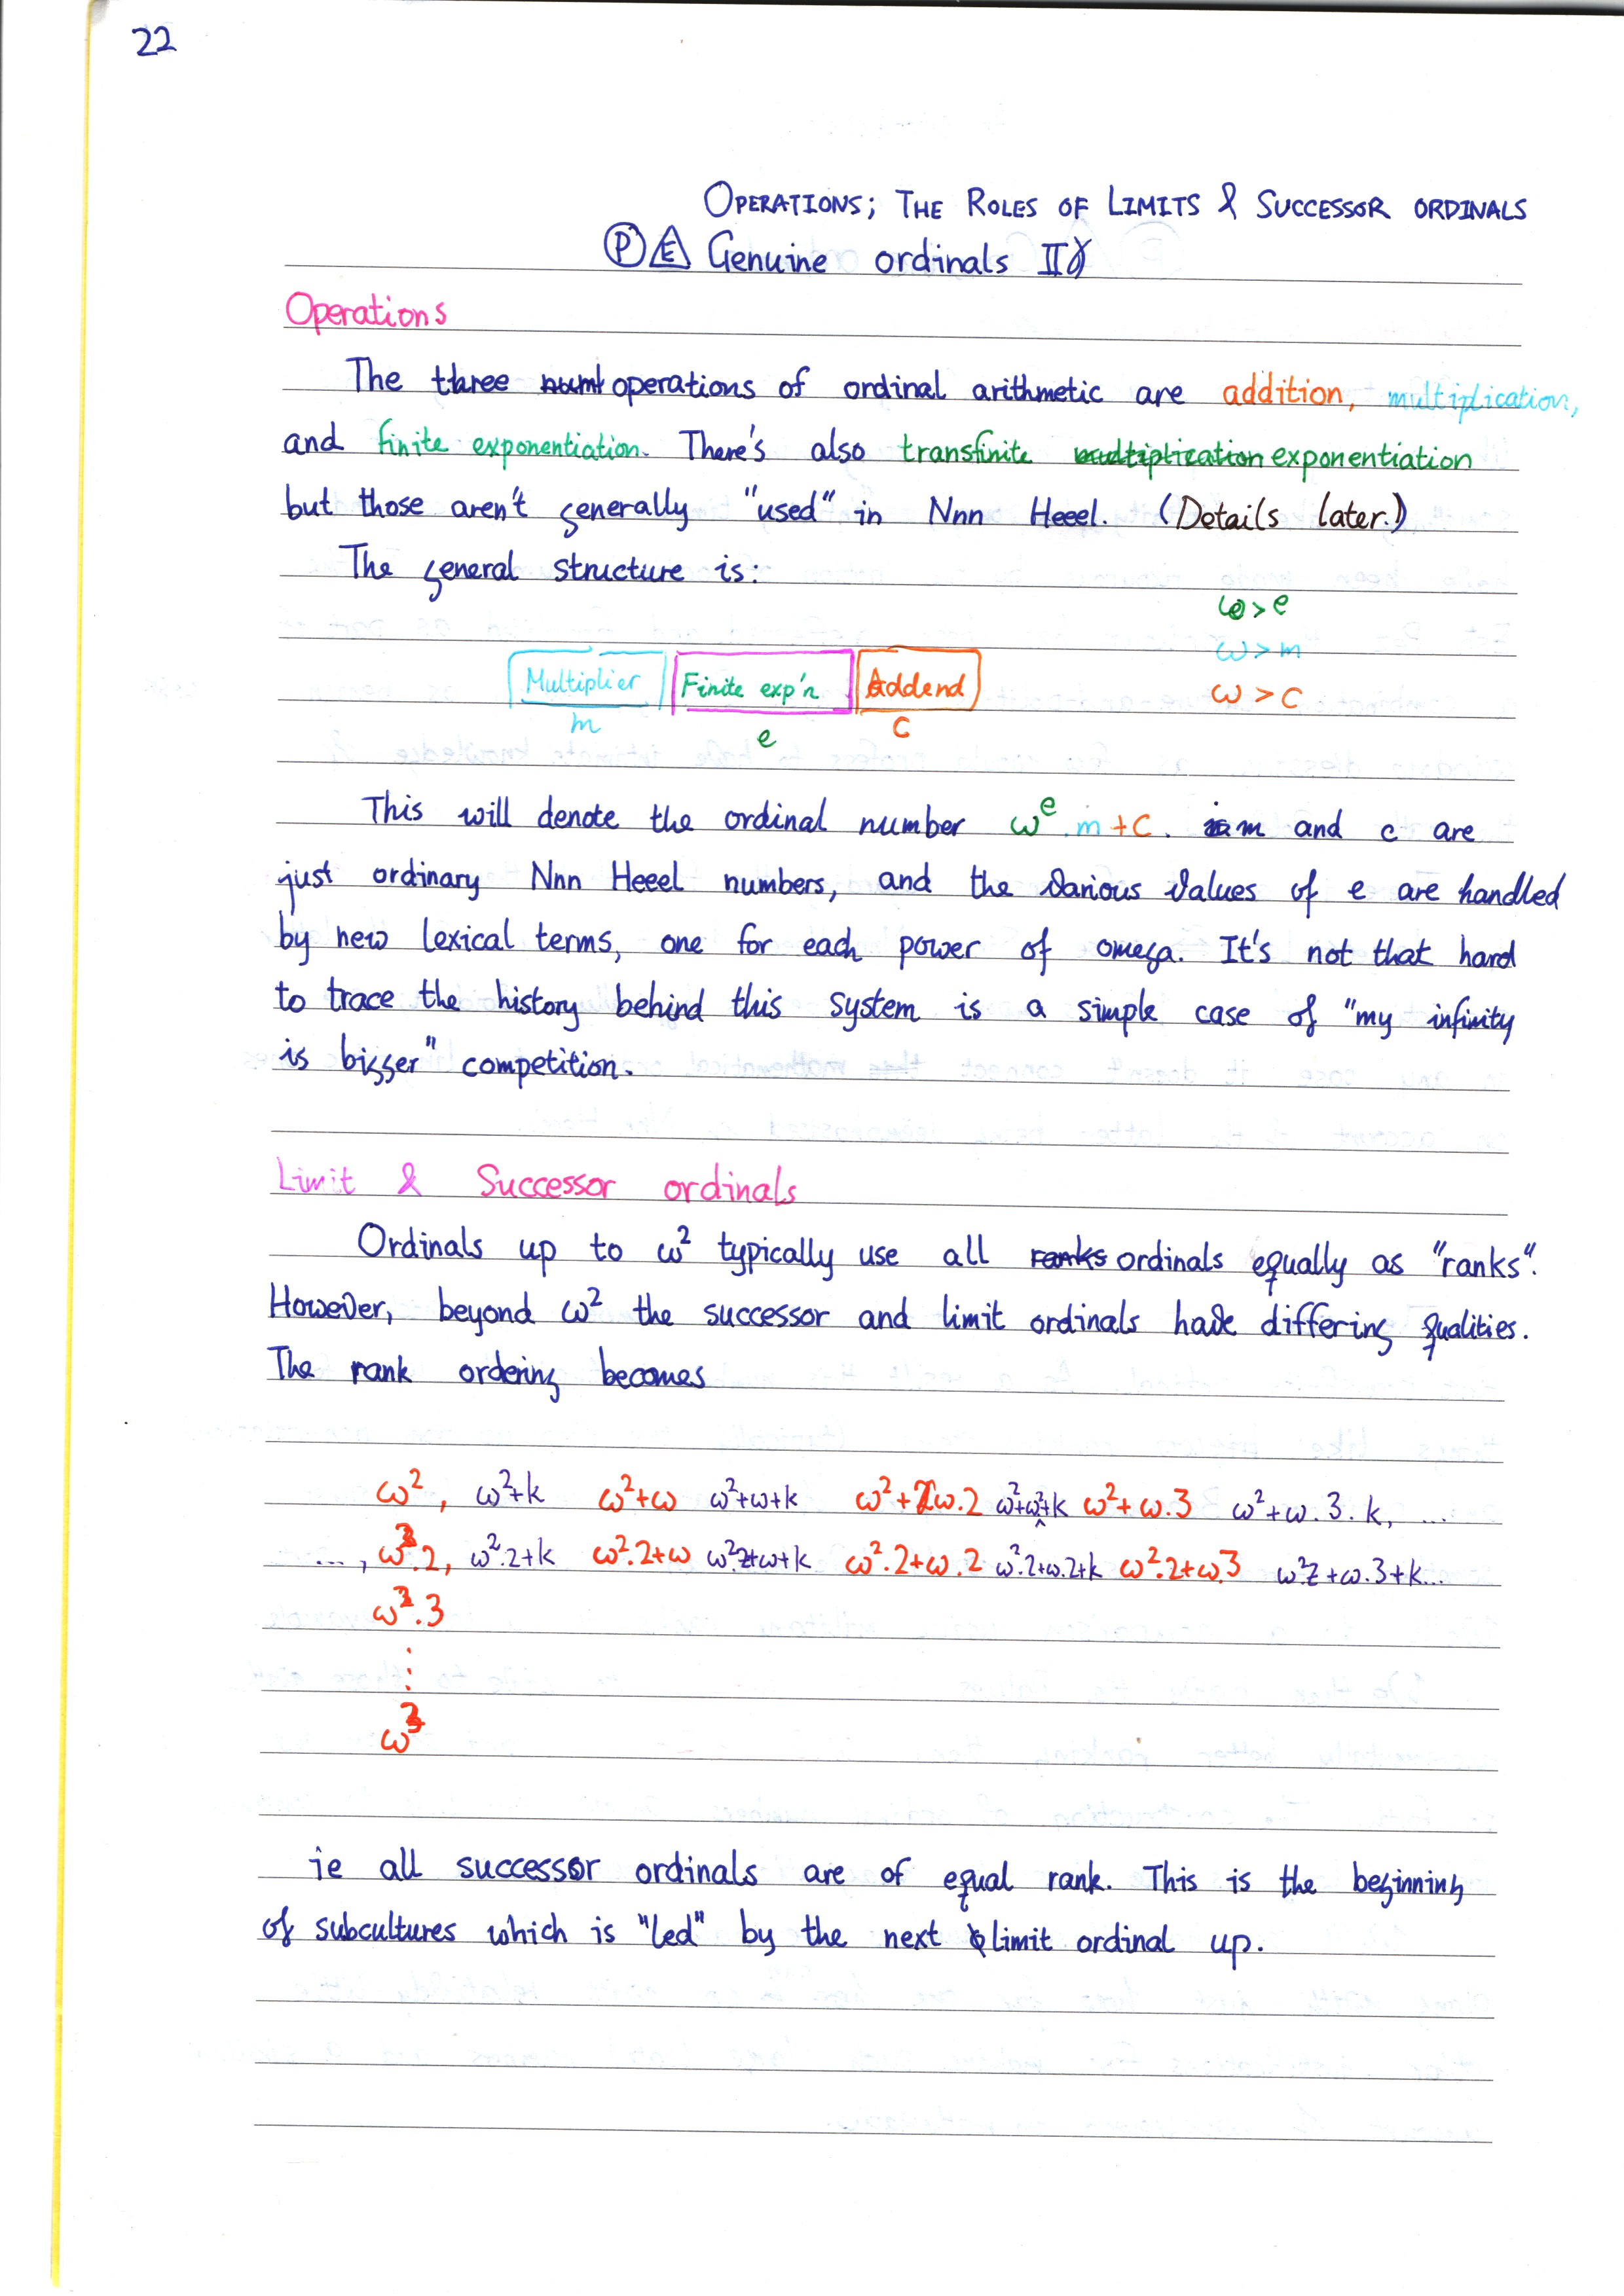 22
OPERATIONS; THE ROLES OF LIMITS & SUCCESSOR ORDINALS
P E Genuine ordinals IIγ
Operations
The three operations of ordinal arithmetic are addition, multiplication,
and finite exponentiation. There's also transfinite multiplication exponentiation
but those aren't generally "used" in Nnn Heeel. (Details later.)
The general structure is:
ω>e
ω>m
Multiplier Finite exp'n Addend
ω>c
m e c
This will denote the ordinal number ω^e.m+c. m and c are
just ordinary Nnn Heeel numbers, and the various values of e are handled
by new lexical terms, one for each power of omega. It's not that hard
to trace the history behind this system is a simple case of "my infinity
is bigger" competition.
Limit & Successor ordinals
Ordinals up to ω² typically use all ranks ordinals equally as "ranks".
However, beyond ω² the successor and limit ordinals have differing qualities.
The rank ordering becomes
ω², ω²+k ω²+ω ω²+ω+k ω²+ω.2 ω²+ω.2+k ω²+ω.3 ω²+ω.3.k, ...
..., ω².2, ω².2+k ω².2+ω ω².2+ω+k ω².2+ω.2 ω².2+ω.2+k ω².2+ω.3 ω².2+ω.3+k...
ω².3
⋮
ω³
ie all successor ordinals are of equal rank. This is the beginning
of subcultures which is "led" by the next limit ordinal up.